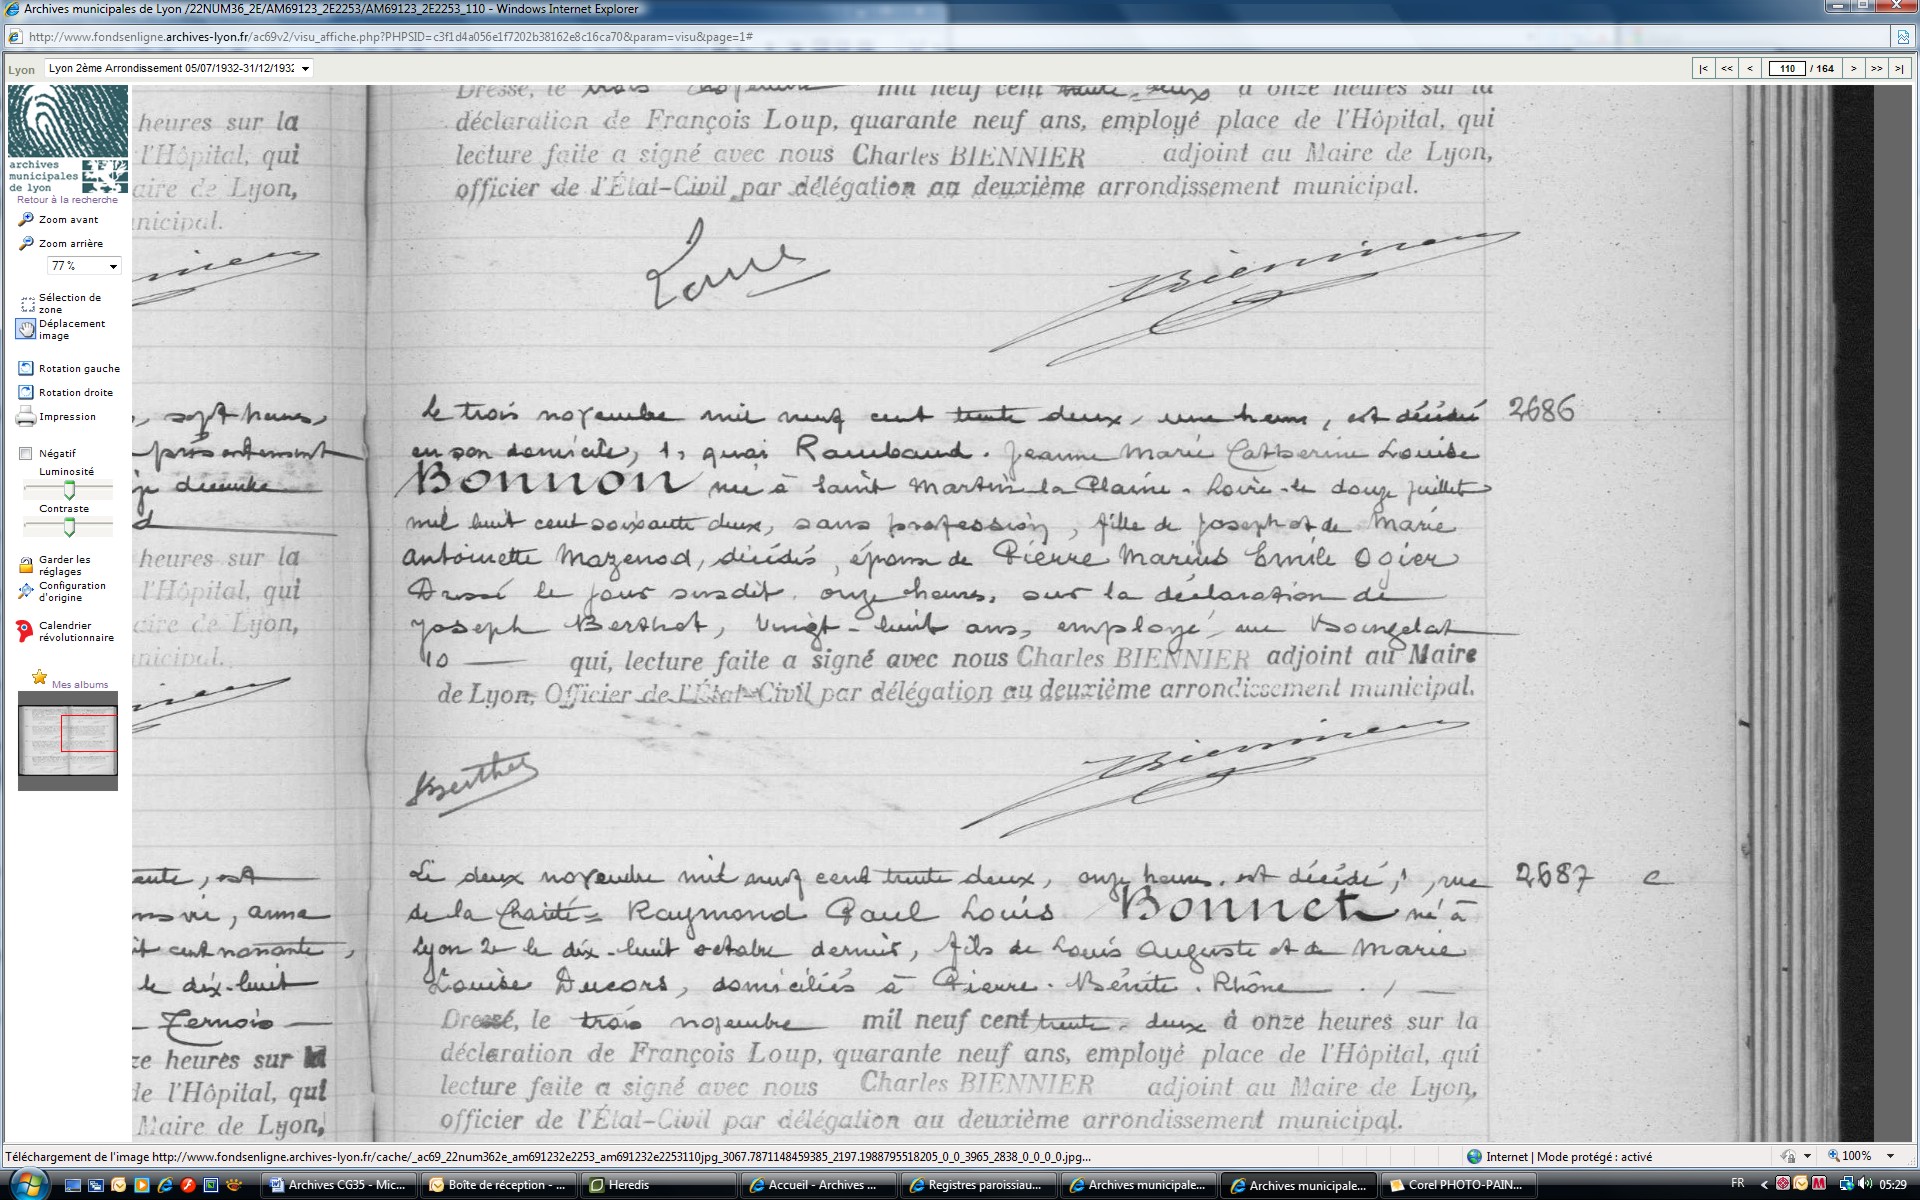 Archives municipales de Lyon /22NUM36_2E/AM69123_2E2253/AM69123_2E2253_110 - Windows Internet Explorer
http://www.fondsenligne.archives-lyon.fr/ac69v2/visu_affiche.php?PHPSID=c3f1d4a056e1f7202b38162e8c16ca70&param=visu&page=1#
Lyon
Lyon 2ème Arrondissement 05/07/1932-31/12/1932
|< << < 110 / 164 > >> >|
archives
municipales
de lyon
Retour à la recherche
Zoom avant
Zoom arrière
77 %
Sélection de
zone
Déplacement
image
Rotation gauche
Rotation droite
Impression
Négatif
Luminosité
Contraste
Garder les
réglages
Configuration
d'origine
Calendrier
révolutionnaire
Mes albums
heures sur la
l'Hôpital, qui
aire de Lyon,
unicipal.
, sept heures,
présentement
heures sur la
l'Hôpital, qui
aire de Lyon,
unicipal.
ente, est
anna
cent nonante,
le dix-huit
Ternois
ze heures sur la
de l'Hôpital, qui
Maire de Lyon,
Dressé, le trois novembre mil neuf cent trente-deux à onze heures sur la
déclaration de François Loup, quarante neuf ans, employé place de l'Hôpital, qui
lecture faite a signé avec nous Charles BIENNIER adjoint au Maire de Lyon,
officier de l'État-Civil par délégation au deuxième arrondissement municipal.
Loup Biennier
Le trois novembre mil neuf cent trente deux, une heure, est décédée 2686
en son domicile, 1, quai Rambaud. Jeanne Marie Catherine Louise
BONNON née à Saint Martin la Plaine - Loire - le douze juillet
mil huit cent soixante deux, sans profession, fille de Joseph et de Marie
Antoinette Mazenod, décédés, épouse de Pierre Marius Emile Ogier
Dressé le jour susdit, onze heures, sur la déclaration de
Joseph Berthet, vingt-huit ans, employé, rue Bourgelat
10 qui, lecture faite a signé avec nous Charles BIENNIER adjoint au Maire
de Lyon, Officier de l'État-Civil par délégation au deuxième arrondissement municipal.
Berthet Biennier
Le deux novembre mil neuf cent trente deux, onze heures, est décédé, 1, rue 2687 c
de la Charité = Raymond Paul Louis BONNET né à
Lyon 2e le dix-huit octobre dernier, fils de Louis Auguste et de Marie
Louise Ducors, domiciliés à Pierre-Bénite. Rhône
Dressé, le trois novembre mil neuf cent trente-deux à onze heures sur la
déclaration de François Loup, quarante neuf ans, employé place de l'Hôpital, qui
lecture faite a signé avec nous Charles BIENNIER adjoint au Maire de Lyon,
officier de l'État-Civil par délégation au deuxième arrondissement municipal.
Téléchargement de l'image http://www.fondsenligne.archives-lyon.fr/cache/_ac69_22num362e_am691232e2253_am691232e2253110jpg_3067.7871148459385_2197.1988795518205_0_0_3965_2838_0_0_0_0.jpg...
Internet | Mode protégé : activé
100%
Archives CG35 - Mic...
Boîte de réception - ...
Heredis
Accueil - Archives ...
Registres paroissiau...
Archives municipale...
Archives municipale...
Corel PHOTO-PAIN...
FR
05:29